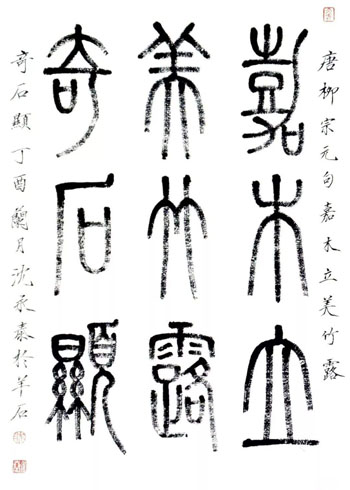 唐柳宗元句嘉木立美竹露
嘉木立
美竹露
奇石顯
奇石顯丁酉蘭月沈永泰於羊石